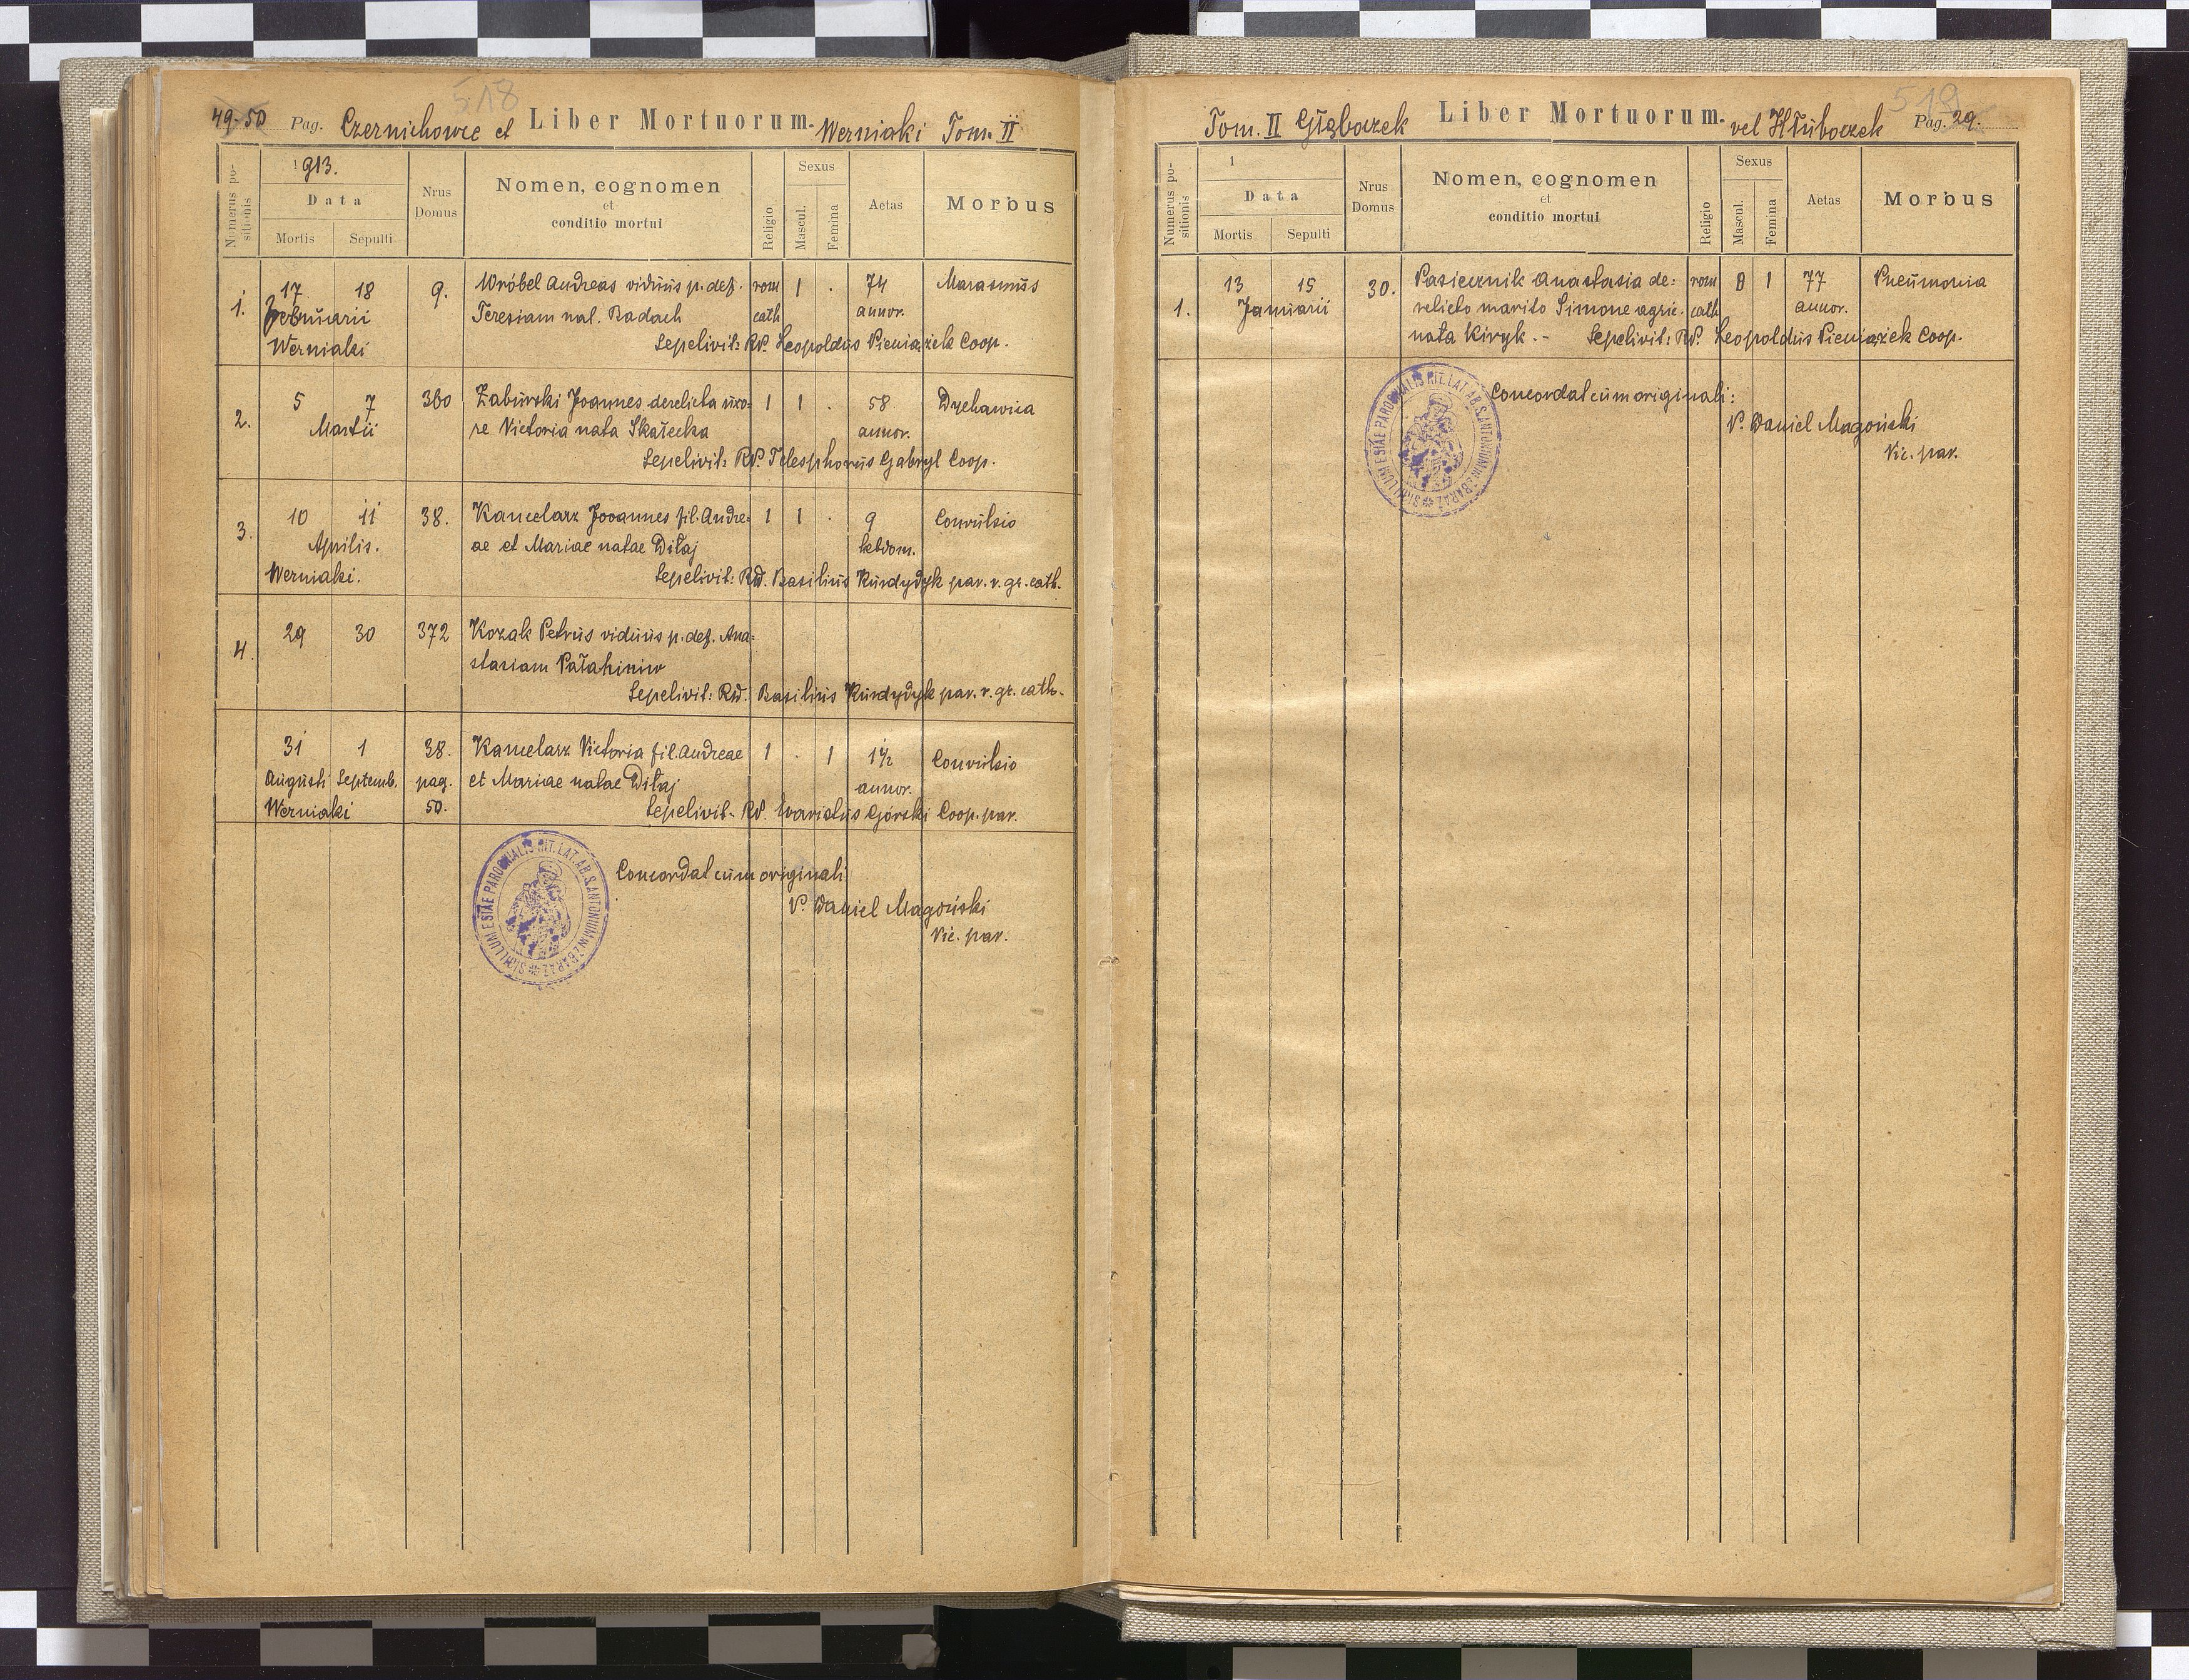 518
49-50 Pag. Czernichowce et Liber Mortuorum. Werniaki Tom. II
Numerus positionis
1913.
Data
Mortis Sepulti
Nrus Domus
Nomen, cognomen
et
conditio mortui
Religio
Sexus
Mascul. Femina
Aetas
Morbus
1. 17 18 9. Wróbel Andreas viduus p. def. rom 1 . 74 Marasmus
Februarii Teresiam nat. Badach cath annor.
Werniaki Sepelivit: RP. Leopoldus Pieniążek Coop.
2. 5 7 360 Zaburski Joannes derelicta uxo= 1 1 . 58 Dychawica
Martii re Victoria nata Skałecka annor.
Sepelivit: RP. Telesphorus Gabryl Coop.
3. 10 11 38. Kancelarz Joannes fil. Andre= 1 1 . 9 Convulsio
Aprilis. ae et Mariae natae Diłaj hebdom.
Werniaki. Sepelivit: Rd. Basilius Kurdydyk par. r. gr. cath.
4. 29 30 372 Kozak Petrus viduus p. def. Ana=
stasiam Pałahiniw
Sepelivit: Rd. Basilius Kurdydyk par. r. gr. cath.
31 1 38. Kancelarz Victoria fil. Andreae 1 . 1 1 1/2 Convulsio
Augusti Septemb. pag. et Mariae natae Diłaj annor.
Werniaki 50. Sepelivit- RP. Evaristus Górski Coop. par.
SIGILLUM ECCLESIAE PAROCHIALIS RIT. LAT. AB. S. ANTONIUM IN ZBARAZ
Concordat cum originali
P. Daniel Magoński
Vic. par.
519
Tom. II Głęboczek Liber Mortuorum. vel Hłuboczek Pag. 29.
Numerus positionis
1
Data
Mortis Sepulti
Nrus Domus
Nomen, cognomen
et
conditio mortui
Religio
Sexus
Mascul. Femina
Aetas
Morbus
1. 13 15 30. Pasiecznik Anastasia de= rom 0 1 77 Pneumonia
Januarii relicto marito Simone agric. cath annor.
nata Kiryk. - Sepelivit: RP. Leopoldus Pieniążek Coop.
SIGILLUM ECCLESIAE PAROCHIALIS RIT. LAT. AB. S. ANTONIUM IN ZBARAZ
Concordat cum originali:
P. Daniel Magoński
Vic. par.